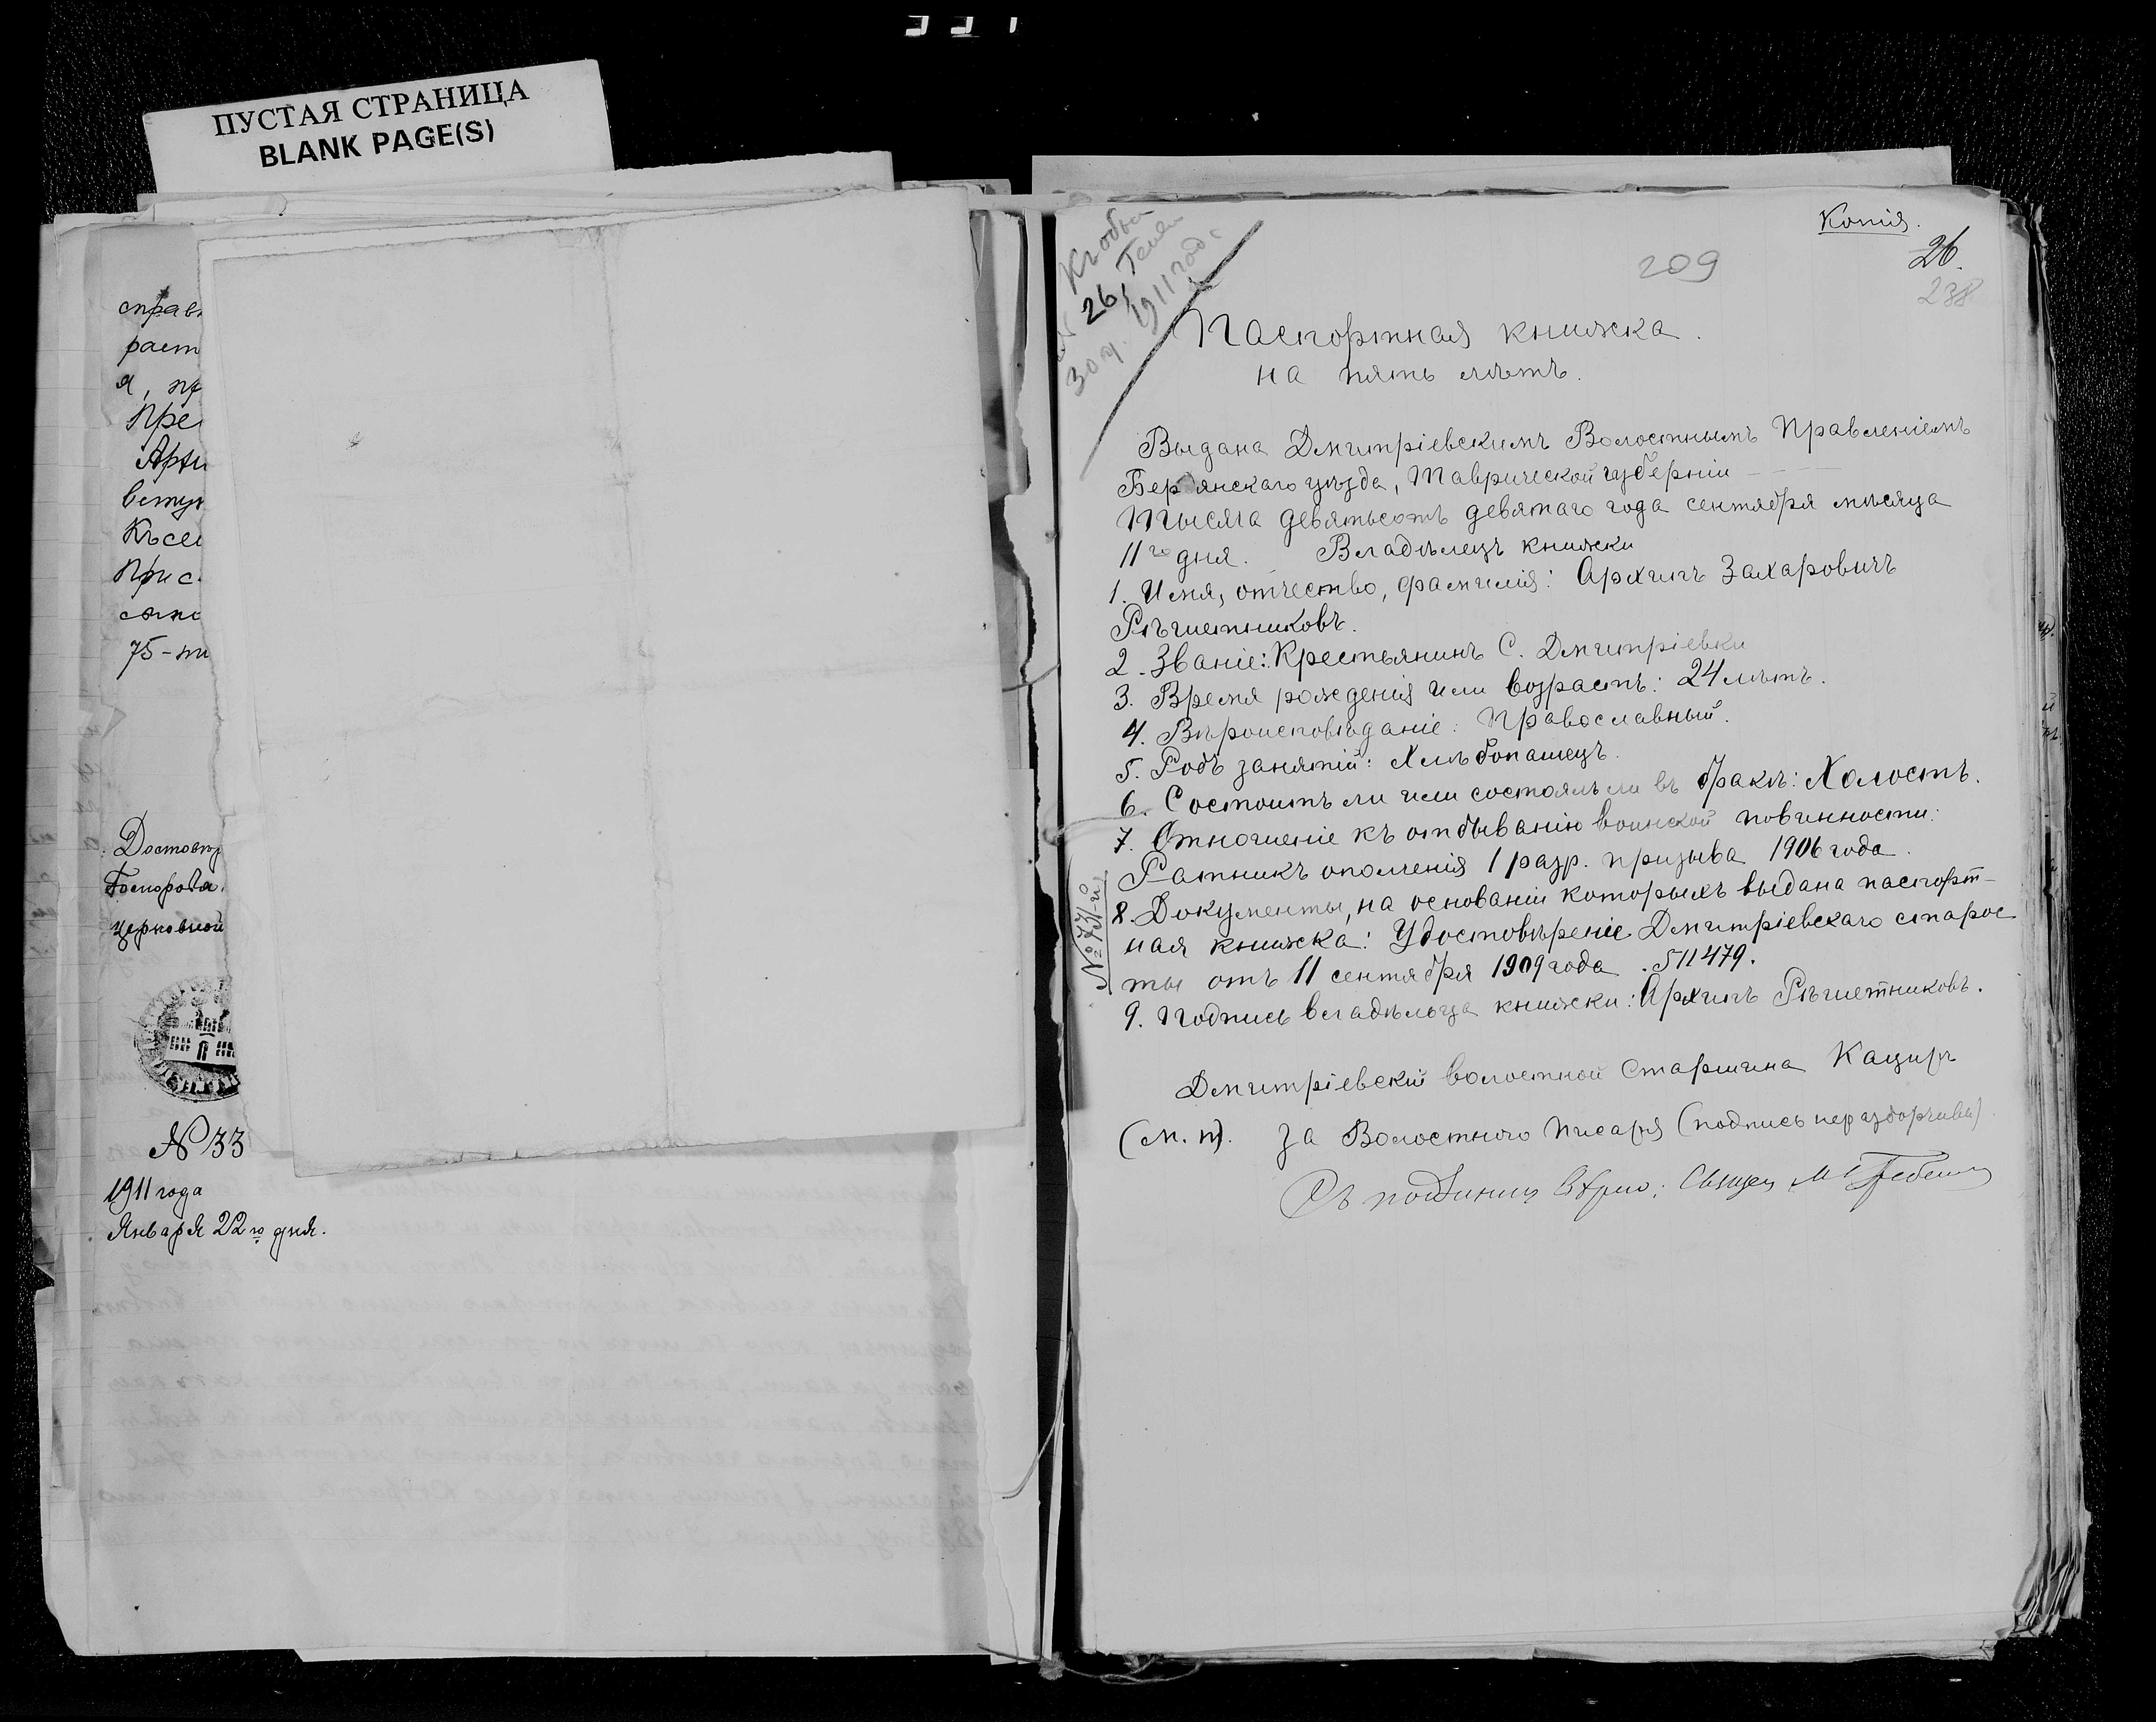 ПУСТАЯ СТРАНИЦА
BLANK PAGE(S)
справ
раст
я, пр
Пре
Архи
вступ
Къ се
Прис
сяти
75-ти
Достовѣр
церковной
№ 33
1911 года
Января 22го дня.
Копія.
209
26.
238
Къ обы
26, Генв
30 ч. 1911 года
Паспортная книжка.
на пять лѣтъ.
Выдана Дмитріевскимъ Волостнымъ Правленіемъ
Бердянскаго уѣзда, Таврической губерніи
Тысяча девятьсотъ девятаго года сентября мѣсяца
11го дня. Владѣлецъ книжки
1. Имя, отчество, фамилія: Архипъ Захаровичъ
Рѣшетниковъ.
2. Званіе: Крестьянинъ С. Дмитріевки
3. Время рожденія или возрастъ: 24 лѣтъ.
4. Вѣроисповѣданіе: Православный.
5. Родъ занятій: Хлѣбопашецъ.
6. Состоитъ ли или состоялъ ли въ бракѣ: Холостъ.
7. Отношеніе къ отбыванію воинской повинности:
Ратникъ ополченія 1 разр. призыва 1906 года.
8. Документы, на основаніи которыхъ выдана паспорт-
ная книжка: Удостовѣреніе Дмитріевскаго старос
ты отъ 11 сентября 1909 года. 511479.
№ 731-й
9. Подпись владѣльца книжки: Архипъ Рѣшетниковъ.
Дмитріевскій волостной Старшина Кациръ
(М. п). За Волостного Писаря (подпись неразборчива).
Съ подлиннымъ вѣрно: Священ М